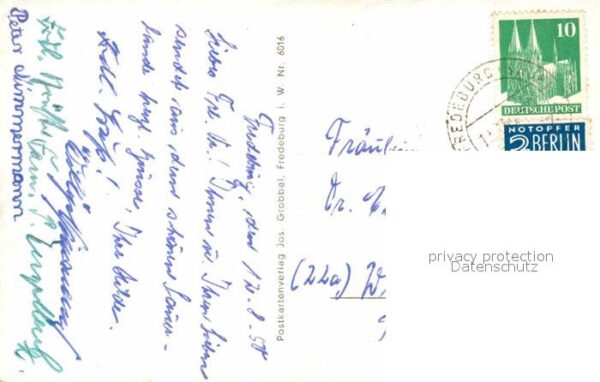 Fredeburg, den 12.8.50
Liebes Frl. Dr.! Ihnen u. Ihren Lieben
sendet aus dem schönen Sauer-
lande herzl. Grüsse, Ihre Hilde.
Frdl. Gruß!
Frdl. Grüße
Peter Zimmermann
Postkartenverlag Jos. Grobbel, Fredeburg i. W. Nr. 6016
10
DEUTSCHE POST
NOTOPFER
2 BERLIN
FREDEBURG
Fräulein
Dr.
(22a)
privacy protection
Datenschutz